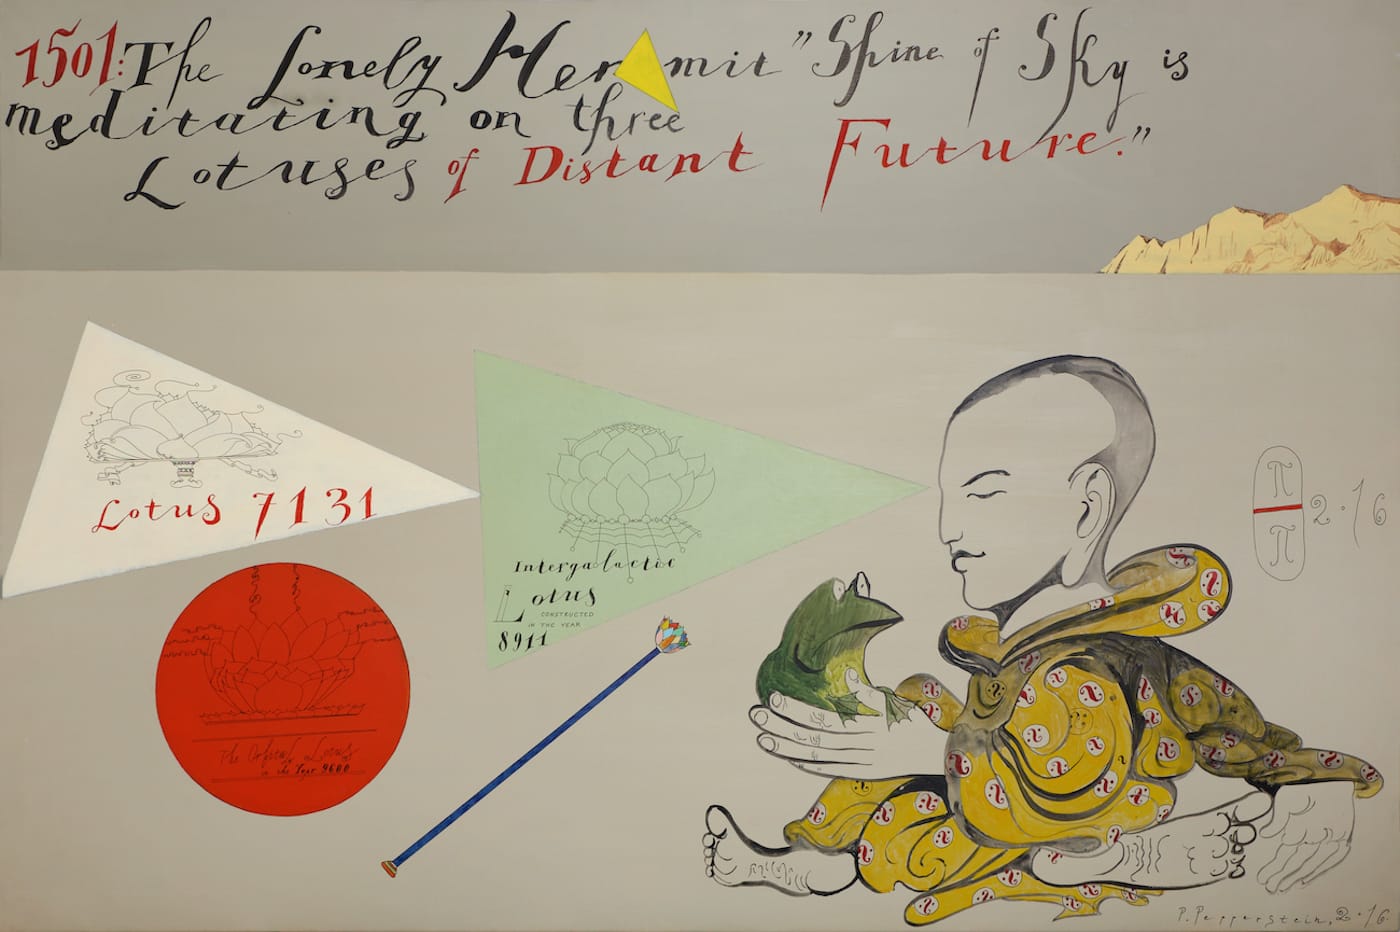 1501: The Lonely Hermit "Shine of Sky is
meditating on three
Lotuses of Distant Future."
Lotus 7131
Intergalactic
Lotus
CONSTRUCTED
IN THE YEAR
8911
The Orbital Lotus
in the Year 9600
π
π
2.16
P. Pepperstein, 2.16.